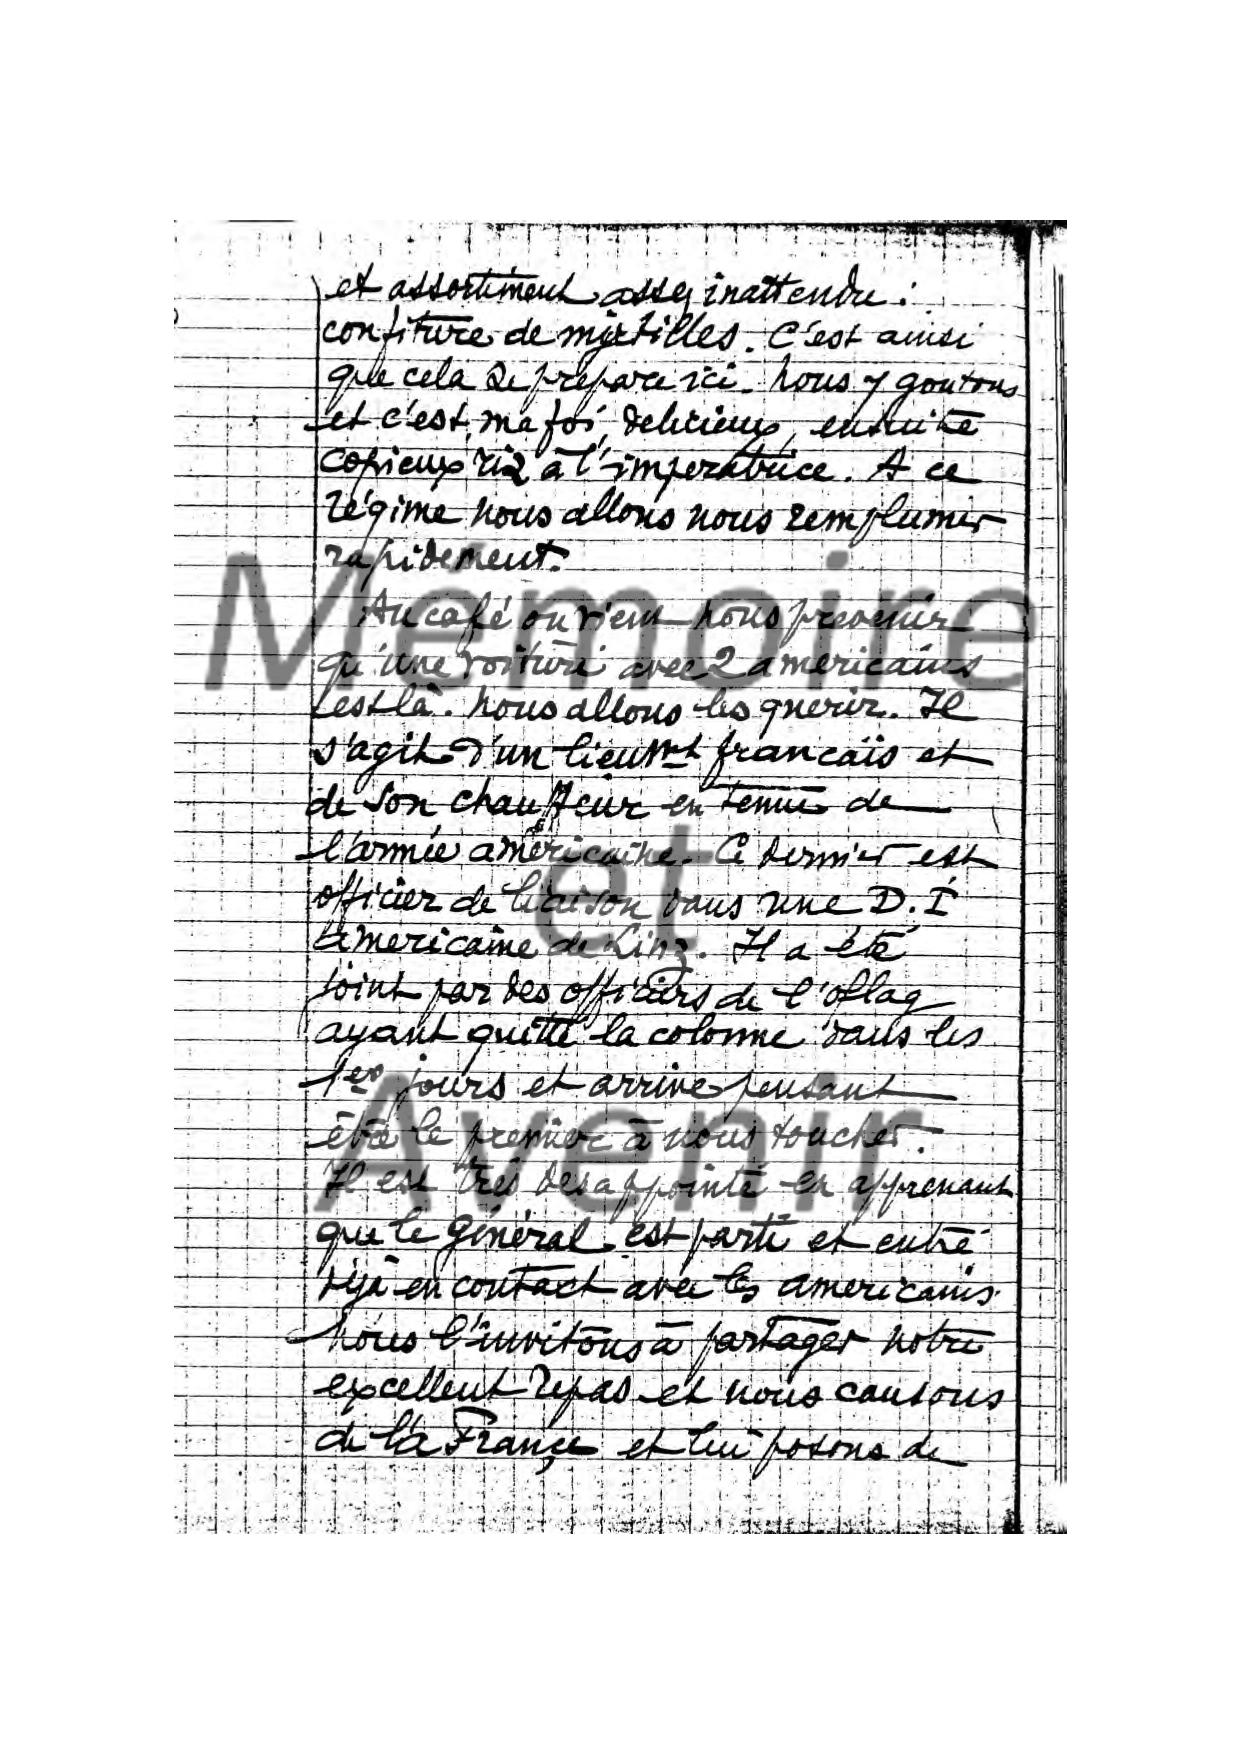 et assortiment assez inattendu :
confiture de myrtilles. C'est ainsi
que cela se prépare ici. Nous y goutons
et c'est, ma foi, delicieux, ensuite
copieux riz à l'imperatrice. A ce
régime nous allons nous remplumer
rapidement.
Mémoire
Au café on vient nous prevenir
qu'une voiture avec 2 americains
est là. Nous allons les querir. Il
s'agit d'un lieutnt francais et
de son chauffeur en tenue de
l'armée américaine. Ce dernier est
et
officier de liaison dans une D.I
americaine de Linz. Il a été
joint par des officiers de l'oflag
ayant quitté la colonne dans les
1ers jours et arrive pensant
Avenir
être le premier à nous toucher.
Il est très desappointé en apprenant
que le Général est parti et entré
déjà en contact avec les americains.
Nous l'invitons à partager notre
excellent repas et nous causons
de la France et lui posons de